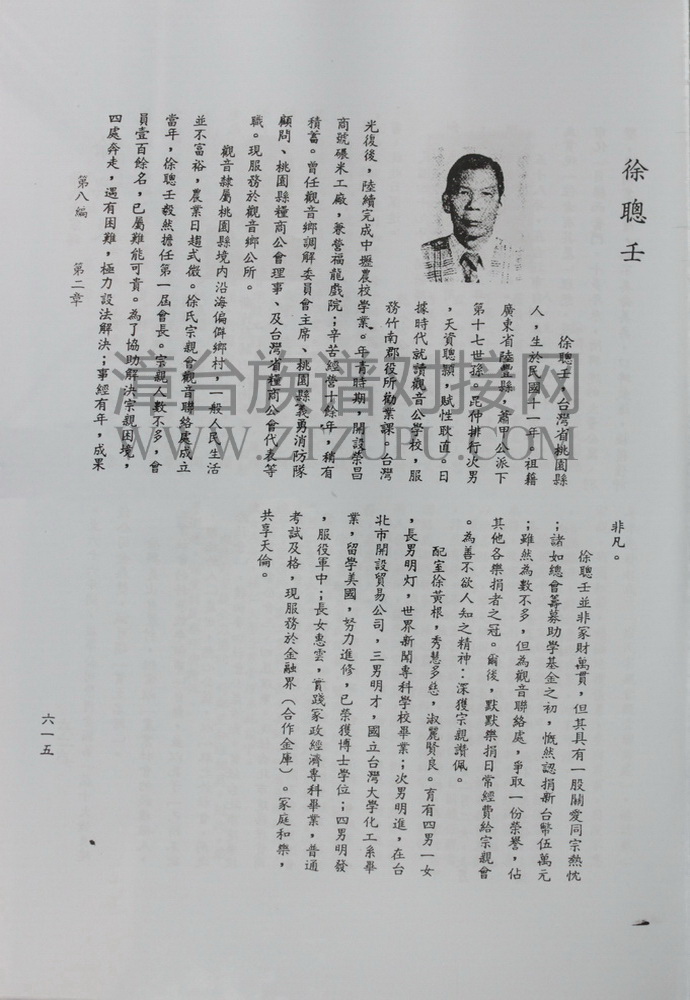 徐聰壬
徐聰壬，台灣省桃園縣
人，生於民國十一年，祖籍
廣東省陸豐縣，蕭
公派下
第十七世孫，昆仲排行次男
，天資聰穎，賦性耿直。日
據時代就讀觀音公學校，服
務竹南郡役所勸業課。台灣
光復後，陸續完成中壢農校學業。年青時期，開設榮昌
商號碾米工廠，兼營福龍戲院；辛苦經營十餘年，稍有
積蓄。曾任觀音鄉調解委員會主席、桃園縣義勇消防隊
顧問、桃園縣糧商公會理事、及台灣省糧商公會代表等
職。現服務於觀音鄉公所。
觀音隸屬桃園縣境內沿海偏僻鄉村，一般人民生活
並不富裕，農業日趨式微。徐氏宗親會觀音聯絡處成立
當年，徐聰壬毅然擔任第一屆會長。宗親人數不多，會
員壹百餘名，已屬難能可貴。為了協助解決宗親困境，
四處奔走，遇有困難，極力設法解決；事經有年，成果
非凡。
徐聰壬並非家財萬貫，但其具有一股關愛同宗熱忱
；諸如總會籌募助學基金之初，慨然認捐新台幣伍萬元
；雖然為數不多，但為觀音聯絡處，爭取一份榮譽，佔
其他各樂捐者之冠。爾後，默默樂捐日常經費給宗親會
。為善不欲人知之精神：深獲宗親讚佩。
配室徐黃根，秀慧多慈，淑麗賢良。育有四男一女
，長男明灯，世界新聞專科學校畢業；次男明進，在台
北市開設貿易公司，三男明才，國立台灣大學化工系畢
業，留學美國，努力進修，已榮獲博士學位；四男明發
，服役軍中；長女惠雲，實踐家政經濟專科畢業，普通
考試及格，現服務於金融界（合作金庫）。家庭和樂，
共享天倫。
第八編　第二章
六一五
漳台族谱对接网
WWW.ZTZUPU.COM